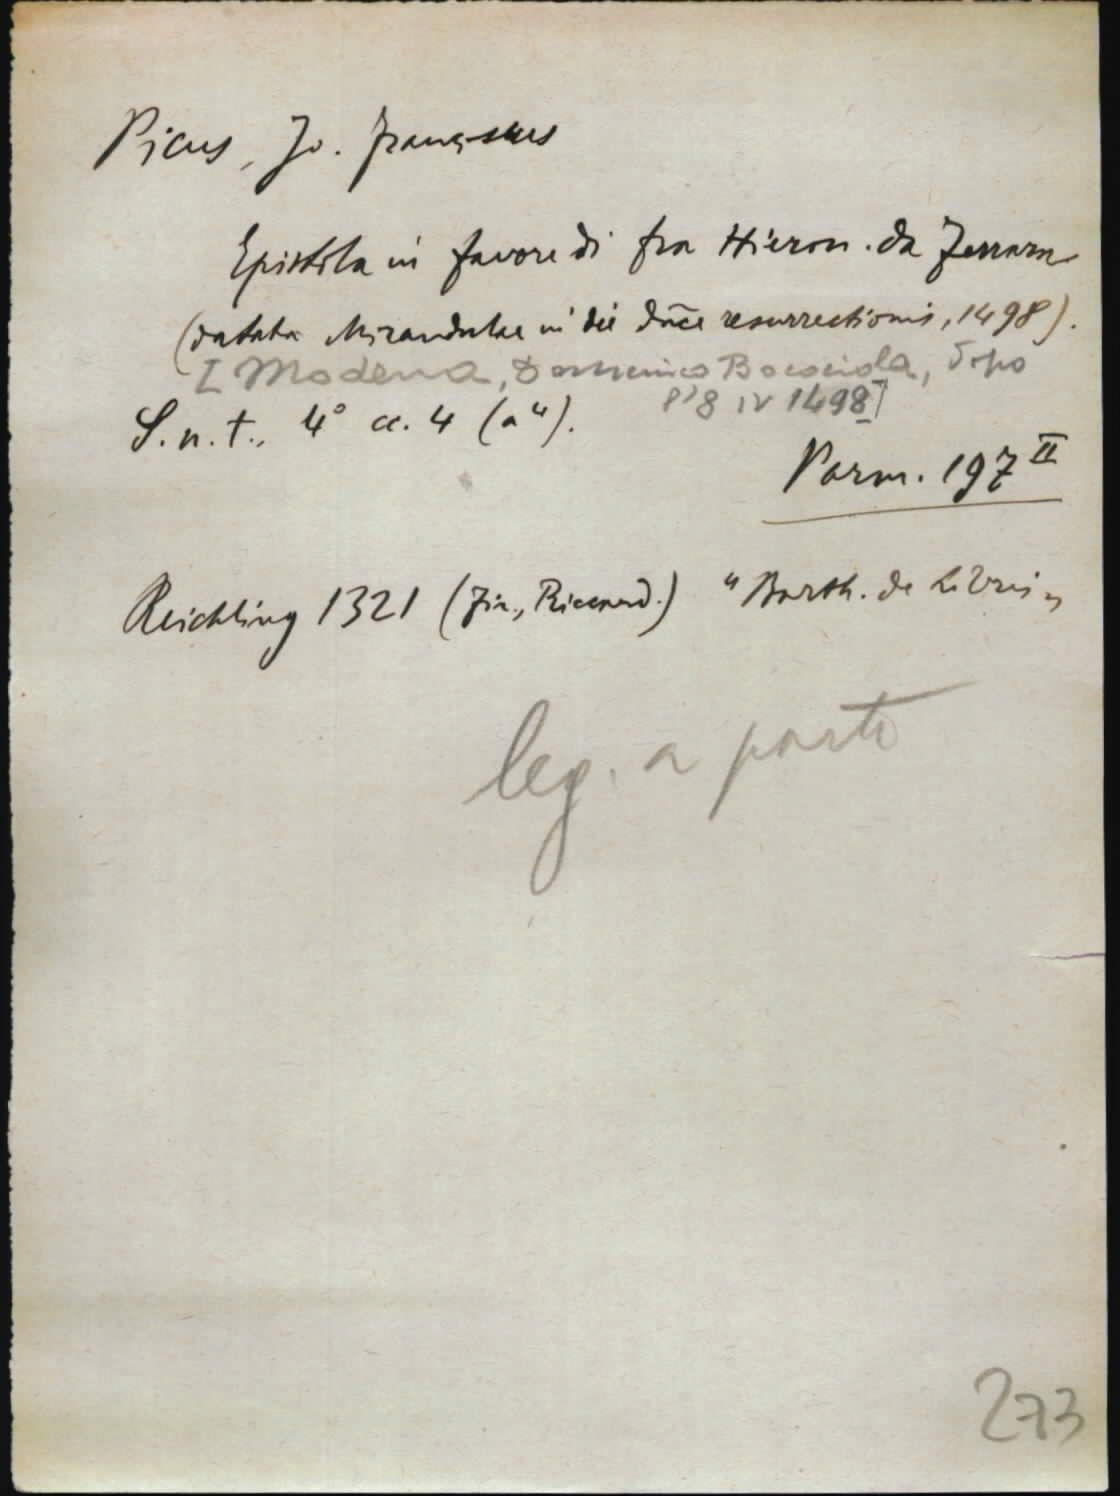 Picus, Jo. Franciscus
Epistola in favore di fra Hieron. da Ferrara
(datata Mirandulae in die dn̄ce resurrectionis, 1498).
[Modena, Domenico Rococciola, dopo
l'8 IV 1498]
S. n. t., 4° cc. 4 (a⁴).
Parm. 197 II
Reichling 1321 (Fir., Riccard.) "Barth. de Libris"
leg. a parte
273